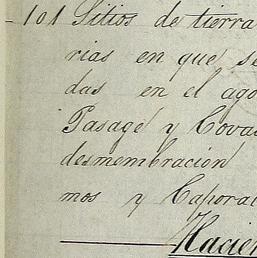 101 Sitios de tierra
rias en que se
das en el ago
Pasage y Cova
desmembración
mos y Caporal
Hacien